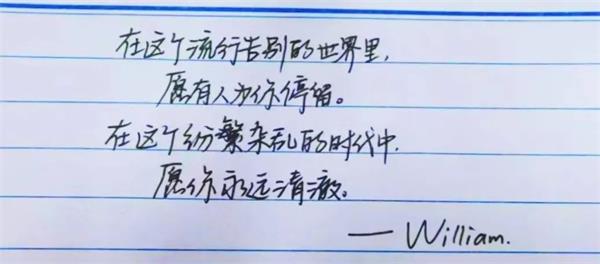 在这个流行告别的世界里,
愿有人为你停留。
在这个纷繁杂乱的时代中.
愿你永远清澈。
— William.